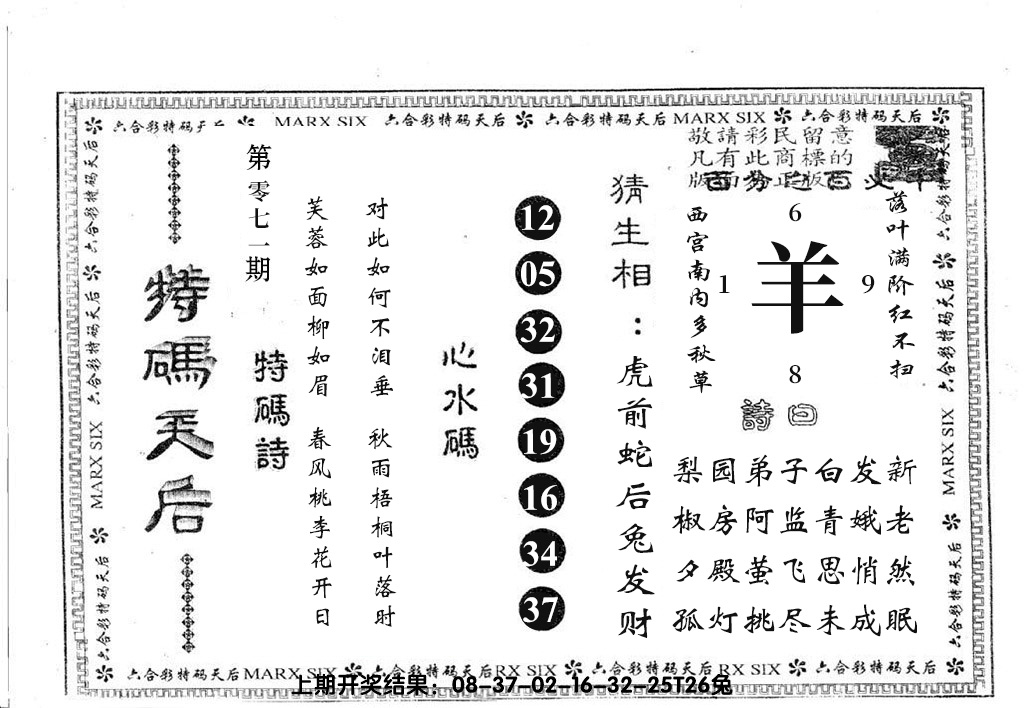 六合彩特码天后
MARX SIX
六合彩特码天后
六合彩特码天后
MARX SIX
六合彩特码天后
敬請彩民留意
凡有此商標的
版面為正版
第零七一期
特碼天后
特碼詩
芙蓉如面柳如眉
春风桃李花开日
对此如何不泪垂
秋雨梧桐叶落时
心水碼
12
05
32
31
19
16
34
37
猜生相：虎前蛇后兔发财
西宫南内多秋草
6
1
羊
9
8
落叶满阶红不扫
詩曰
梨园弟子白发新
椒房阿监青娥老
夕殿萤飞思悄然
孤灯挑尽未成眠
六合彩特码天后
六合彩特码天后
MARX SIX
六合彩特码天后
六合彩特码天后
六合彩特码天后
MARX SIX
六合彩特码天后
六合彩特码天后
MARX SIX
六合彩特码天后
RX SIX
六合彩特码天后
RX SIX
六合彩特码天后
上期开奖结果：08-37-02-16-32-25T26兔